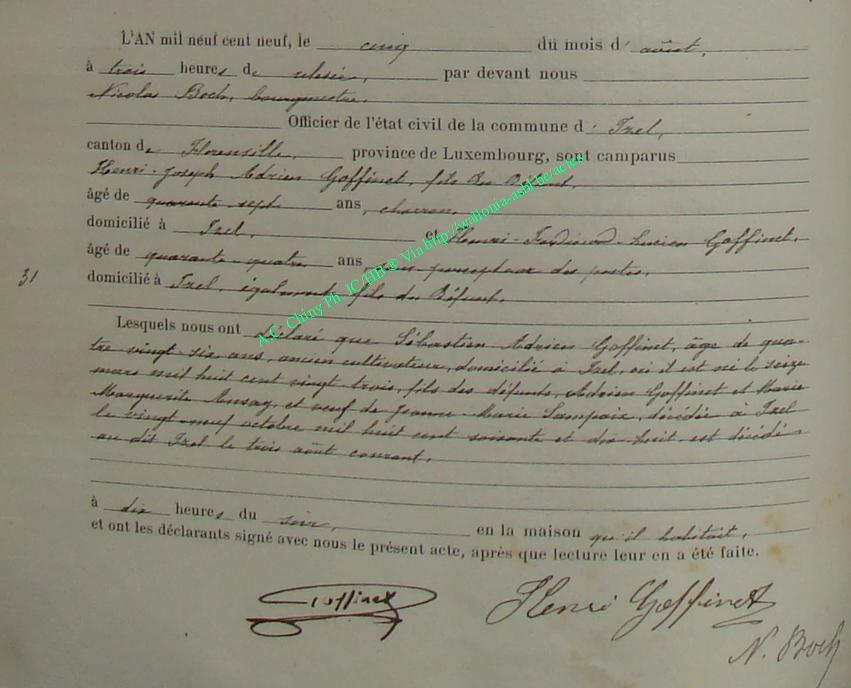 L'AN mil neuf cent neuf, le cinq du mois d' août,
à trois heures de relevée, par devant nous
Nicolas Boch, bourgmestre,
Officier de l'état civil de la commune d' Izel,
canton de Florenville, province de Luxembourg, sont camparus
Henri-Joseph Adrien Goffinet, fils du Défunt,
âgé de quarante sept ans, charron,
domicilié à Izel, et Henri-Ferdinand-Lucien Goffinet,
âgé de quarante-quatre ans percepteur des postes,
31
domicilié à Izel, également fils du Défunt.
Lesquels nous ont déclaré que Sébastien Adrien Goffinet, âgé de qua-
tre vingt-six ans, ancien cultivateur, domicilié à Izel, où il est né le seize
mars mil huit cent vingt trois, fils des défunts, Adrien Goffinet et Marie
Marguerite Ansay, et veuf de Jeanne-Marie Lampaix, décédée à Izel
le vingt-neuf octobre mil huit cent soixante et dix-huit est décédé
au dit Izel le trois août courant,
à dix heures du soir, en la maison qu'il habitait,
et ont les déclarants signé avec nous le présent acte, après que lecture leur en a été faite.
Goffinet Henri Goffinet
N. Boch
A.C. Chiny Ph. JC/HB® Via http://wallonia-asbl.be/actes